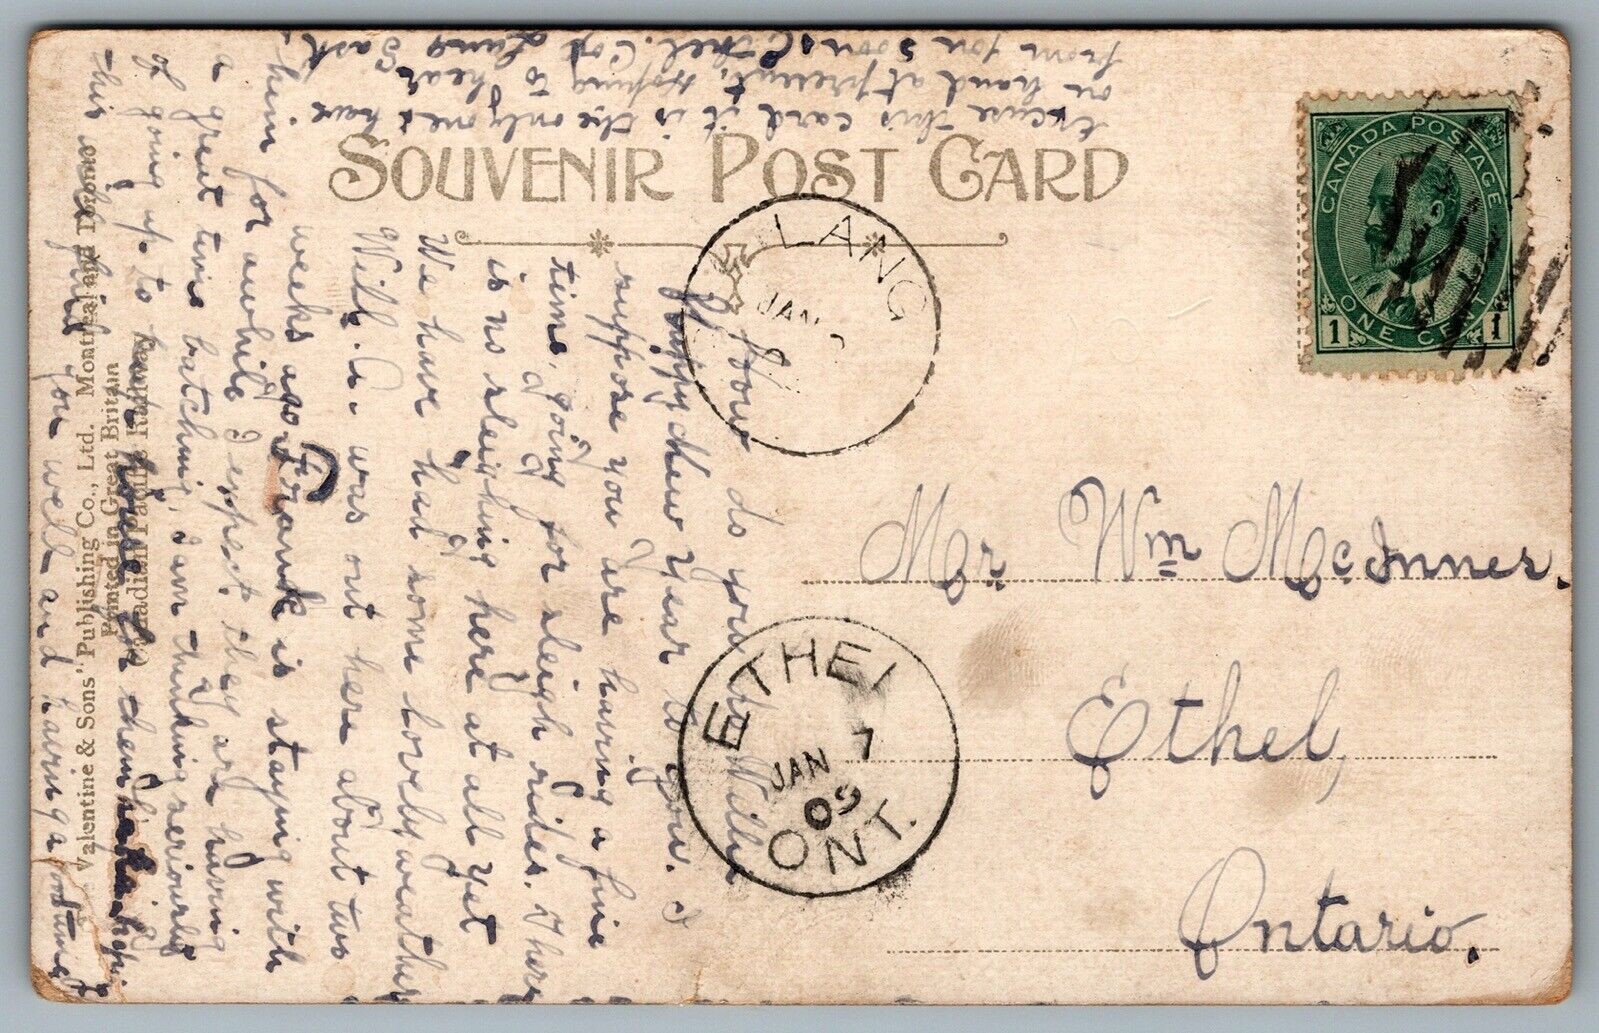 SOUVENIR POST CARD
CANADA POSTAGE
1 ONE CENT 1
LANG
JAN
ETHEL
JAN 7
09
ONT.
Mr Wm McInnes.
Ethel,
Ontario.
How do you do Willie
Happy New Year to you. I
suppose you are having a fine
time, going for sleigh rides. There
is no sleighing here at all yet
We have had some lovely weather
Will. A. was out here about two
weeks ago Frank is staying with
him for awhile I expect they are having
a great time batching, I am thinking seriously
of going up to keep house for them
this finds you well and having a time
Excuse this card it is the only one I have
on hand at present, Hoping to hear
from you soon Ethel. Cox Lang Sask.
Valentine & Sons' Publishing Co., Ltd. Montreal and Toronto
Printed in Great Britain
Canadian Pacific Railway